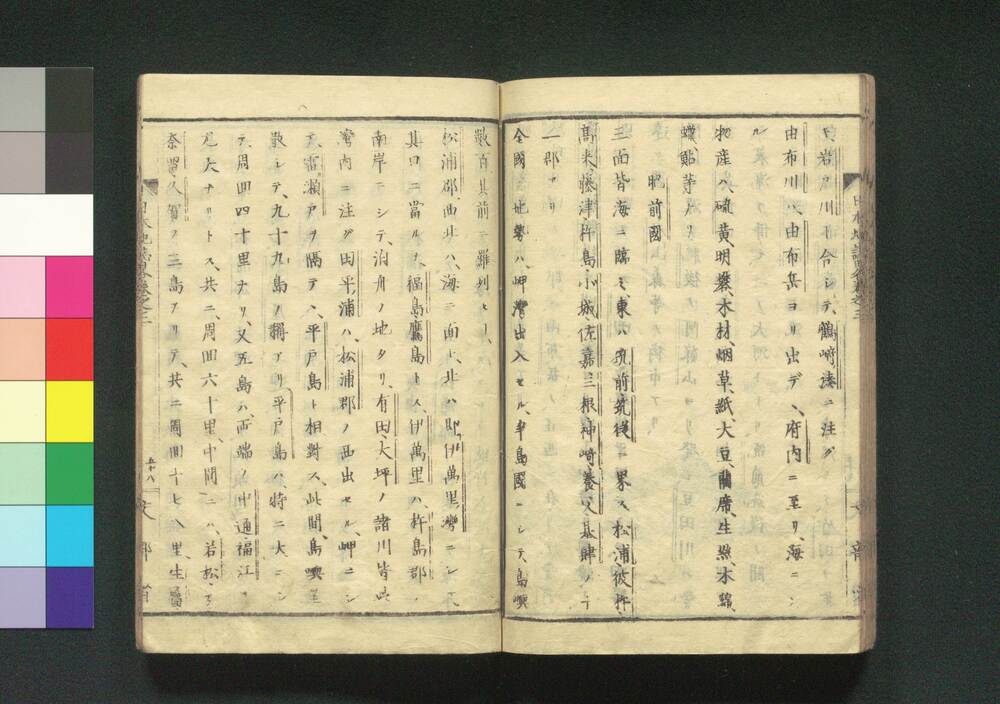 白岩ノ川ト合シテ、鶴﨑湊ニ注グ
由布川ハ、由布岳ヨリ出デ、府内ニ至リ、海ニ
ル
物産ハ、硫黄、明礬、木材、烟草、紙、大豆、蘭席、生蝋、木綿、
蠟、鮎等ナリ
肥前國
三面皆海ニ臨ミ、東ハ、筑前筑後ニ界ス、松浦、彼杵、
髙来、藤津、杵島、小城、佐嘉、三根、神﨑、養父、基肄ノ十
一郡アリ
全國ノ地勢ハ、岬灣出入セル、半島國ニシテ、島嶼
散百其前ニ羅列セリ、
松浦郡、西北ハ、海ニ面ス、北ハ即伊萬里灣ニシテ
其口ニ當ルヲ、福島鷹島トス、伊萬里ハ、杵島郡ノ
南岸ニシテ、泊舟ノ地タリ、有田、大坪ノ諸川皆此
灣内ニ注グ、田平浦ハ、松浦郡ノ西出セル、岬ニシ
テ、雷瀬戸ヲ隔テヽ、平戸島ト相對ス、此間、島嶼星
散シテ、九十九島ノ稱アリ、平戸島ハ、特ニ大ニシ
テ、周回四十里ナリ、又五島ハ、両端ノ中通福江ヲ
尤大ナリトス、共ニ、周回六十里、中間ニハ、若松
奈留久賀ノ三島アリテ、共ニ周囲十七八里、生屬
日本地誌略 巻之三
五十八
文部省